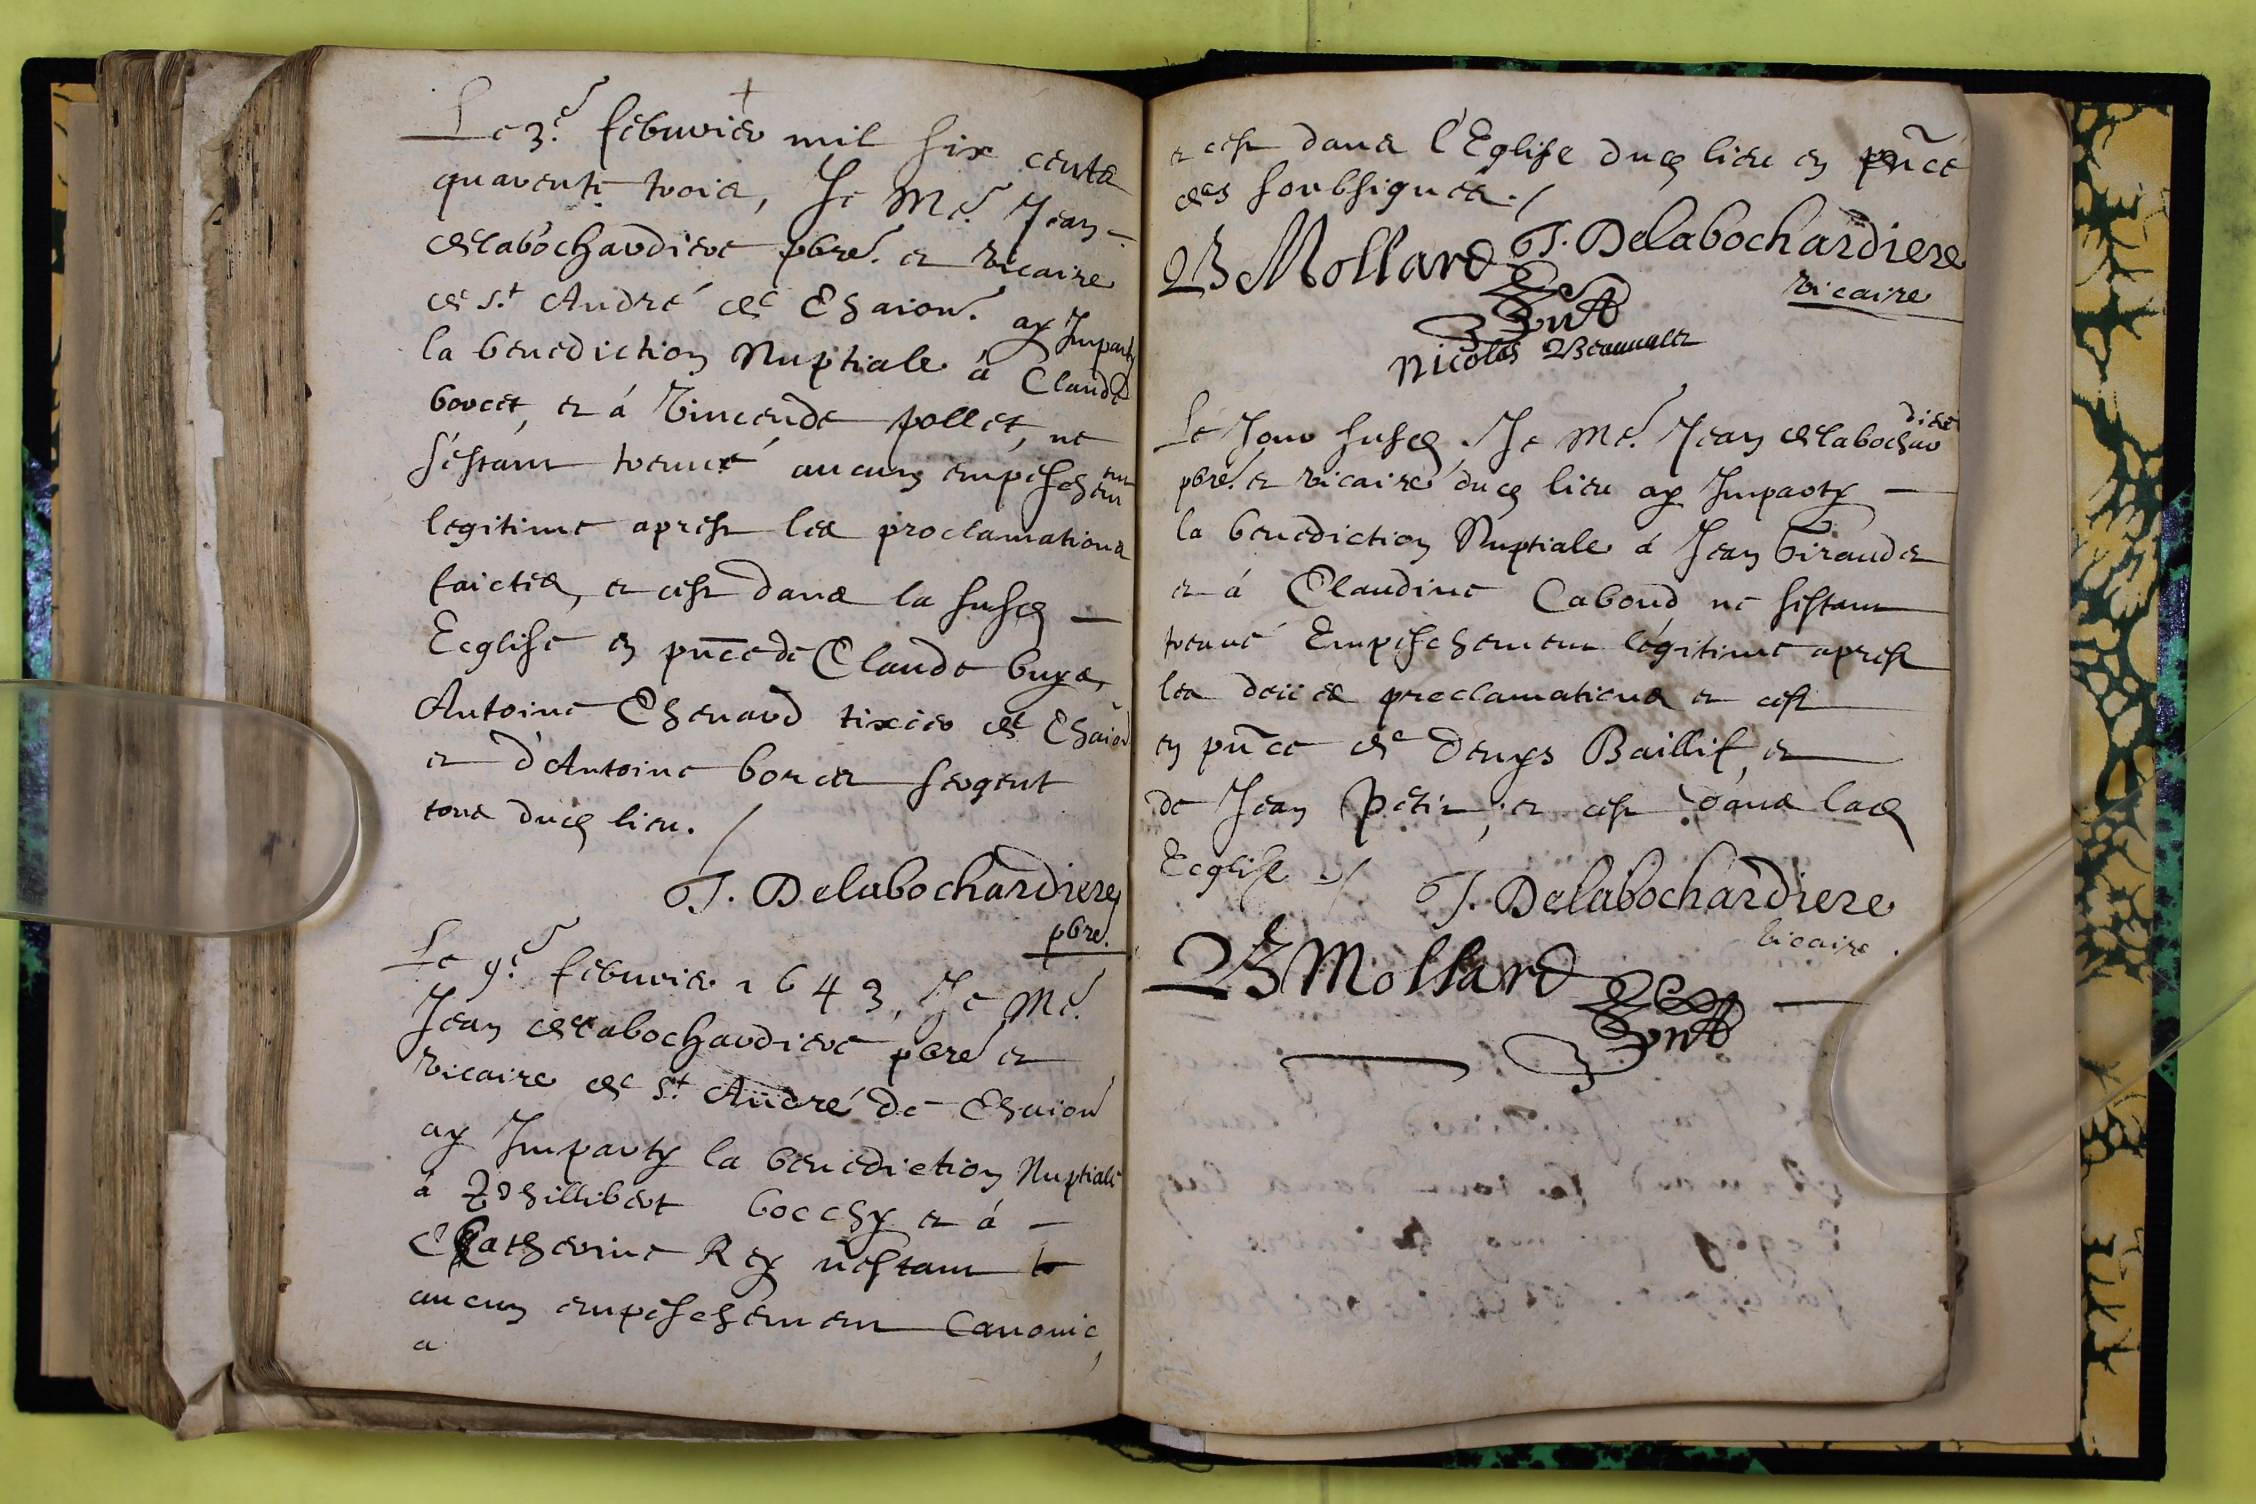 Le 3.e febuvier mil six cents
quarente trois, Je Me. Jean
delabochardiere pbre. et vicaire
de St. André de Charon. ay Imparty
la benediction Nuptiale á Claude
borcet, et á Vincende pollet, ne
s'estant treuué aucung empeschement
legitime aprest les proclamations
faictes, et cest dans la susd
Ecglise en pnce de Claude buys,
Antoine Chenard tixier de
et d'Antoine borcet sergent
tous dud lieu. /
J. Delabochardiere
pbre.
Le 9.e febuvier 1643, Je Me.
Jean delabochardiere pbre et
vicaire de St. André de
ay Imparty la benediction Nuptiale
á Phillibert bocchy et á
Catherine Rey n'estant
aucun empeschement Canonic,
et cest dans l'Eglise dud lieu en pnce
des soubsignés. /
B Mollard J. Delabochardiere
vicaire
Nicolas
Le Jour susd, Je Me. Jean delabochardiere
pbre. et vicaire dud lieu ay Imparty
la benediction Nuptiale á Jean Giraudet
et á Claudine Caboud ne s'estant
treuué Empeschement légitime aprest
les deües proclamations et cest
en pnce de Denys Baillif, et
de Jean Petit, et cest dans lad
Ecglise /
J. Delabochardiere
vicaire.
B Mollard